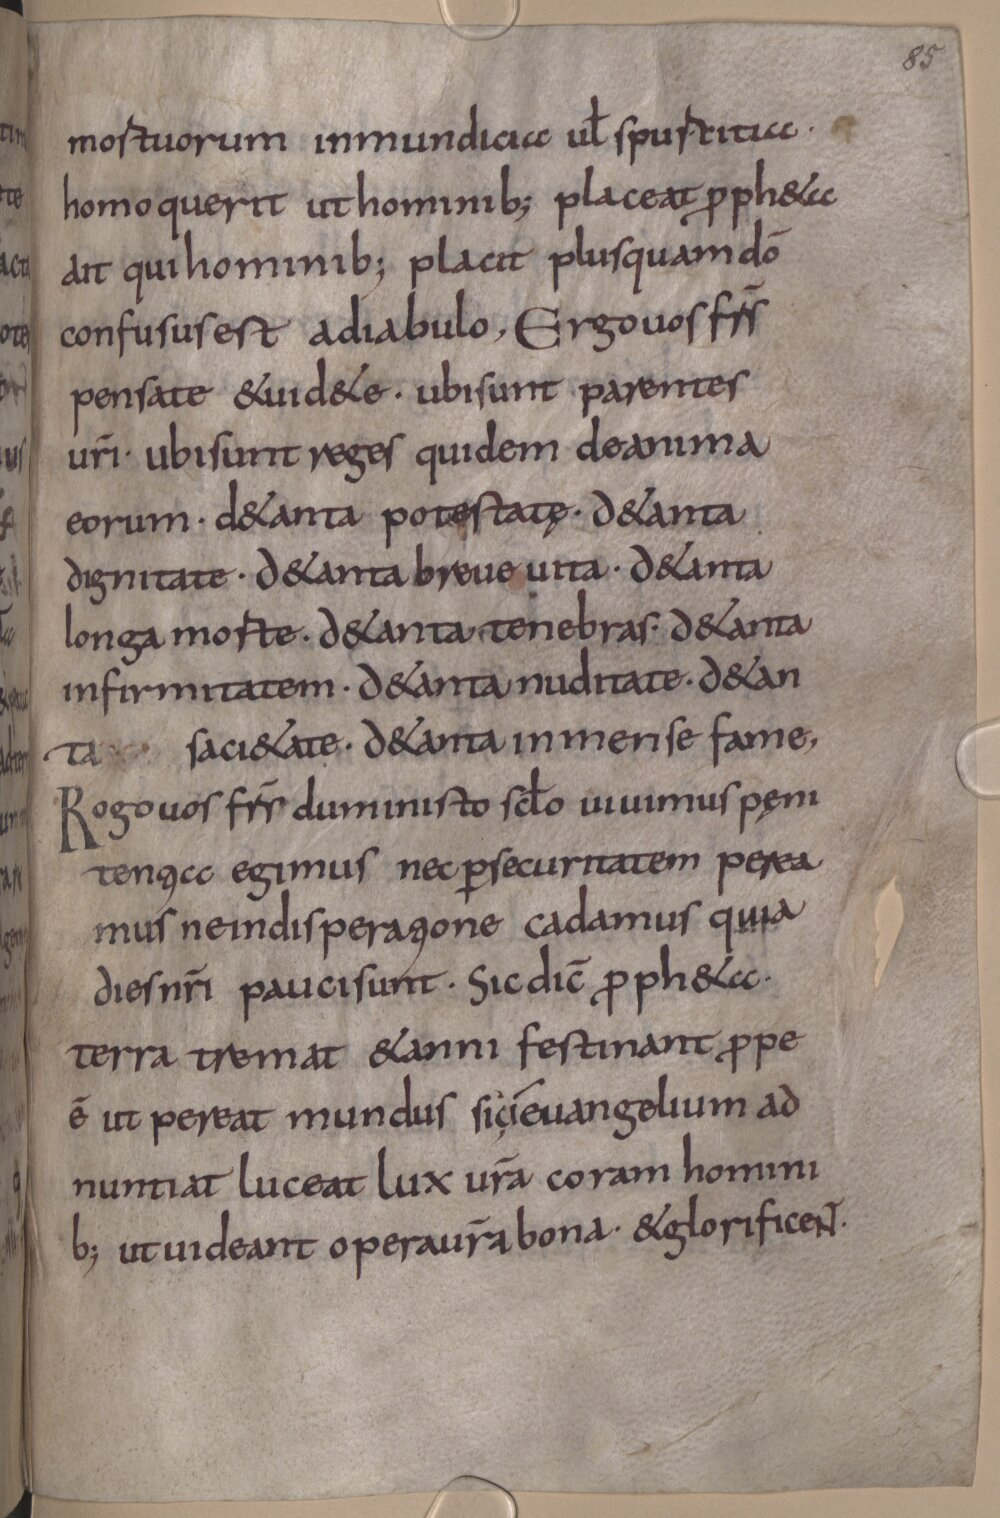 85
mortuorum inmundicia ul̄ spurticia·
homo querit ut hominib; placeat p̄ph&a
ait qui hominib; placit plus quam dō
confusus est a diabulo, Ergo uos fr̄s
pensate & uid&e · ubi sunt parentes
ur̄i· ubi sunt reges quidem de anima
eorum · d& anta potestatę · d& anta
dignitate · d& anta breue uita · d& anta
longa morte · d& anta tenebras · d& anta
infirmitatem · d& anta nuditate · d& an
ta saci&ate · d& anta inmense fame,
Rogo uos fr̄s dum in isto scl̄o uiuimus pęni
tentia egimus nec p̱securitatem perea
mus ne in disperatione cadamus quia
dies nr̄i pauci sunt · Sic dic̄ p̄ph&a·
terra tremat & anni festinant p̄pe
ē ut pereat mundus sic̄ euangelium ad
nuntiat luceat lux ur̄a coram homini
b; ut uideant opera ur̄a bona · & glorificen̄t·